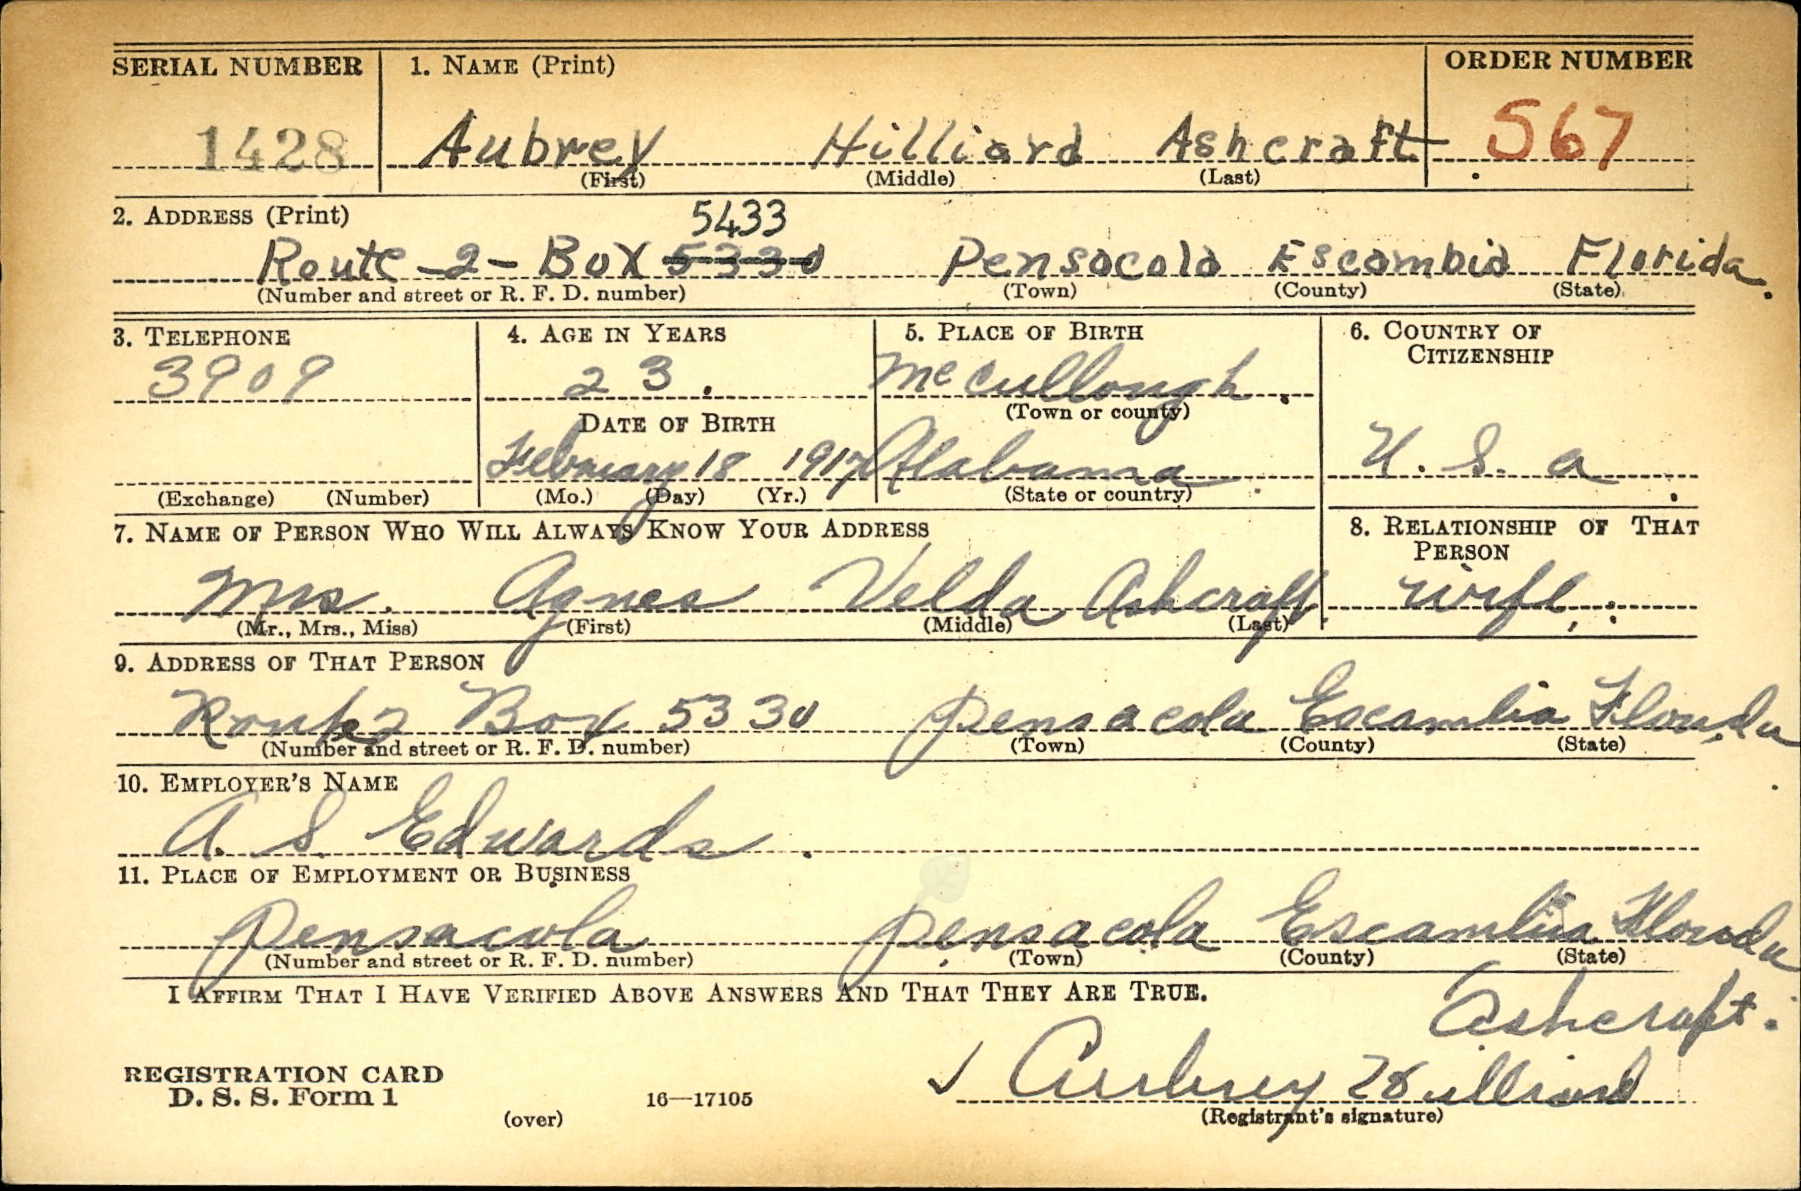 SERIAL NUMBER 1. NAME (Print) ORDER NUMBER
1428 Aubrey Hilliard Ashcraft 567
(First) (Middle) (Last)
2. ADDRESS (Print)
5433
Route -2- Box 5330 Pensacola Escambia Florida.
(Number and street or R. F. D. number) (Town) (County) (State)
3. TELEPHONE 4. AGE IN YEARS 5. PLACE OF BIRTH 6. COUNTRY OF
CITIZENSHIP
3909 23. McCullough.
(Town or county)
DATE OF BIRTH
February 18 1917 Alabama. U. S. a.
(Exchange) (Number) (Mo.) (Day) (Yr.) (State or country)
7. NAME OF PERSON WHO WILL ALWAYS KNOW YOUR ADDRESS 8. RELATIONSHIP OF THAT
PERSON
Mrs. Agnes Velda Ashcraft wife.
(Mr., Mrs., Miss) (First) (Middle) (Last)
9. ADDRESS OF THAT PERSON
Route 2 Box 5330 Pensacola Escambia Florida.
(Number and street or R. F. D. number) (Town) (County) (State)
10. EMPLOYER'S NAME
A. S. Edwards.
11. PLACE OF EMPLOYMENT OR BUSINESS
Pensacola Pensacola Escambia Florida
(Number and street or R. F. D. number) (Town) (County) (State)
I AFFIRM THAT I HAVE VERIFIED ABOVE ANSWERS AND THAT THEY ARE TRUE.
Ashcraft.
REGISTRATION CARD
D. S. S. Form 1 ✓ Aubrey Hilliard
(over) 16—17105 (Registrant's signature)